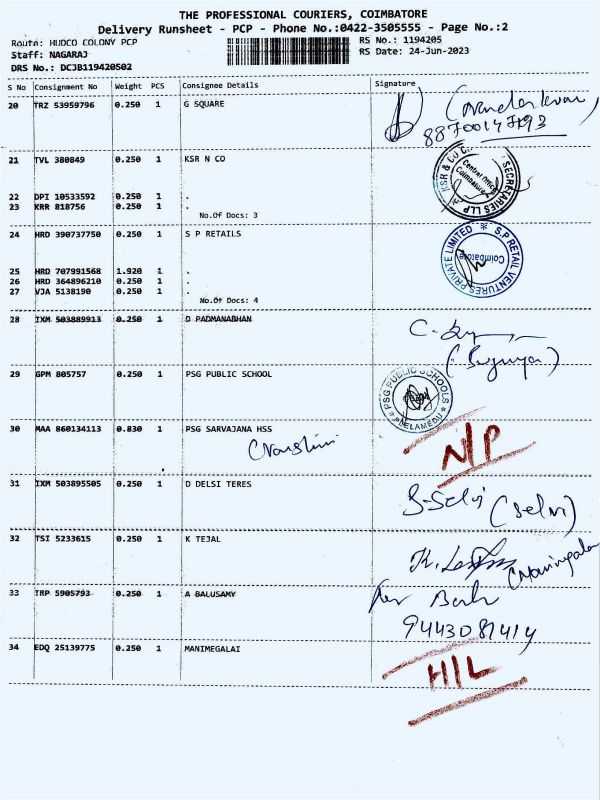 THE PROFESSIONAL COURIERS, COIMBATORE
Delivery Runsheet - PCP - Phone No.:0422-3505555 - Page No.:2
Route: HUDCO COLONY PCP
RS No.: 1194205
Staff: NAGARAJ
RS Date: 24-Jun-2023
DRS No.: DCJB119420502
S No Consignment No Weight PCS Consignee Details Signature
20 TRZ 53959796 0.250 1 G SQUARE
88700147193
21 TVL 380849 0.250 1 KSR N CO
KSR & CO COMPANY SECRETARIES LLP
Central Office
Coimbatore
22 DPI 10533592 0.250 1 .
23 KRR 818756 0.250 1 .
No.Of Docs: 3
24 HRD 390737750 0.250 1 S P RETAILS
S.P RETAIL VENTURES PRIVATE LIMITED
Coimbatore
25 HRD 707991568 1.920 1 .
26 HRD 364896210 0.250 1 .
27 VJA 5138190 0.250 1 .
No.Of Docs: 4
28 IXM 503889913 0.250 1 D PADMANABHAN
29 GPM 805757 0.250 1 PSG PUBLIC SCHOOL
PSG PUBLIC SCHOOLS
PEELAMEDU
30 MAA 860134113 0.830 1 PSG SARVAJANA HSS
N/P
31 IXM 503895505 0.250 1 D DELSI TERES
S-Selvi (Selvi)
32 TSI 5233615 0.250 1 K TEJAL
33 TRP 5905793 0.250 1 A BALUSAMY
9443081414
34 EDQ 25139775 0.250 1 MANIMEGALAI
H/L